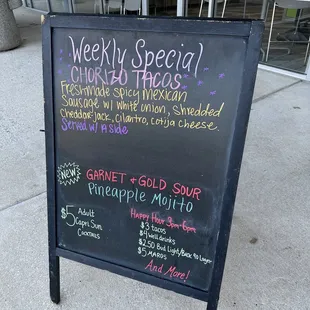 Weekly Special
CHORIZO TACOS
Fresh-made spicy Mexican
Sausage w/ white onion, shredded
cheddar-jack, cilantro, cotija cheese
Served w/ A side
New
GARNET + GOLD SOUR
Pineapple Mojito
$5 Adult
Capri Sun
Cocktails
Happy Hour 3pm-6pm
$3 tacos
$4 well drinks
$2.50 Bud Light/Back to Lager
$5 MARGS
And More!